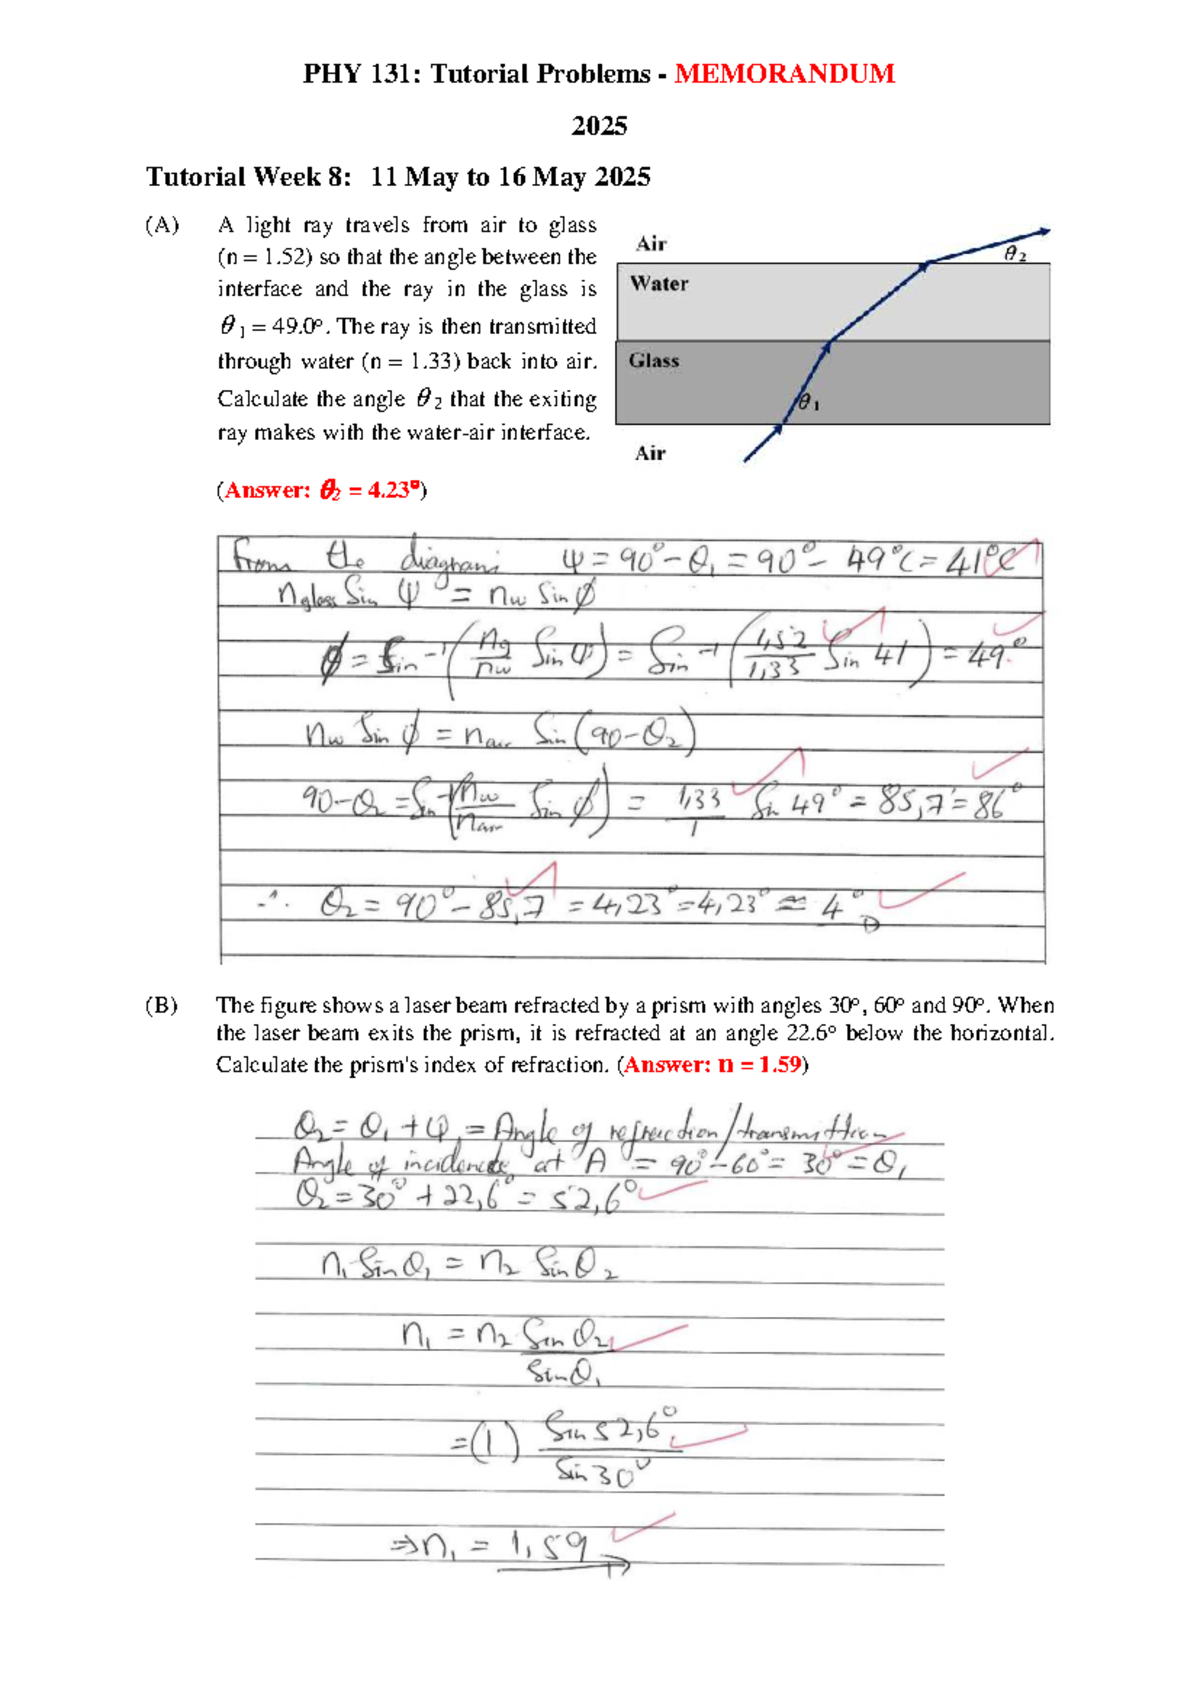 PHY 131: Tutorial Problems - MEMORANDUM
2025
Tutorial Week 8: 11 May to 16 May 2025
(A) A light ray travels from air to glass
(n = 1.52) so that the angle between the
interface and the ray in the glass is
θ1 = 49.0º. The ray is then transmitted
through water (n = 1.33) back into air.
Calculate the angle θ2 that the exiting
ray makes with the water-air interface.
(Answer: θ2 = 4.23º)
Air
θ2
Water
Glass
θ1
Air
From the diagram: ψ = 90° - θ1 = 90° - 49°C = 41°C
nglass Sin ψ = nw Sin ϕ
ϕ = Sin-1(ng/nw Sin ψ) = Sin-1(1,52/1,33 Sin 41) = 49.°
nw Sin ϕ = nair Sin(90-θ2)
90-θ2 = Sin-1(nw/nair Sin ϕ) = 1,33/1 Sin 49° = 85,7 = 86°
∴ θ2 = 90° - 85,7 = 4,23° = 4,23° ≈ 4°
(B) The figure shows a laser beam refracted by a prism with angles 30º, 60º and 90º. When
the laser beam exits the prism, it is refracted at an angle 22.6º below the horizontal.
Calculate the prism's index of refraction. (Answer: n = 1.59)
θ2 = θ1 + φ, = Angle of refraction/transmittion
Angle of incidence at A = 90° - 60° = 30° = θ1
θ2 = 30° + 22,6° = 52,6°
n1 Sin θ1 = n2 Sin θ2
n1 = n2 Sin θ2
Sin θ1
= (1) Sin 52,6°
Sin 30°
⇒ n1 = 1,59